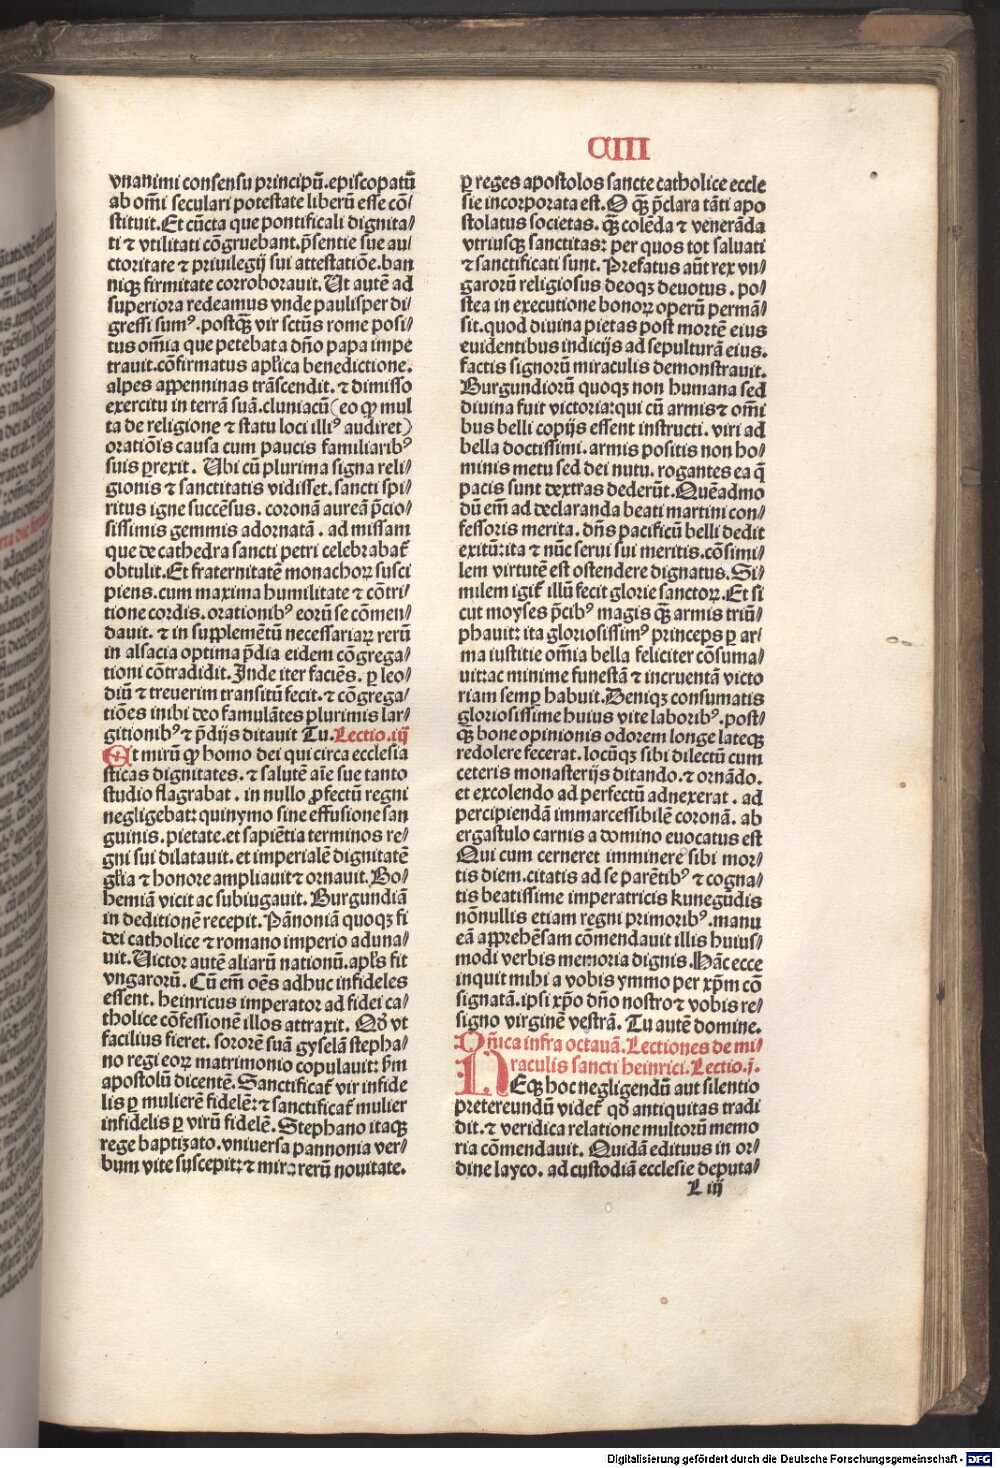 CIII
vnanimi consensu principū.episcopatū
ab om̄i seculari potestate liberū esse cō/
stituit.Et cūcta que pontificali dignita/
ti ⁊ vtilitati cōgruebant.p̄sentie sue au/
ctoritate ⁊ priuilegij sui attestatiōe.ban
niqꝫ firmitate corroborauit. Ut autē ad
superiora redeamus vnde paulisper di/
gressi sumꝰ.postqꝫ̄ vir sctūs rome posi/
tus om̄ia que petebata dn̄o papa impe
trauit.cōfirmatus apl̓ica benedictione.
alpes appenninas trāscendit. ⁊ dimisso
exercitu in terrā suā.cluniacū(eo ꝙ mul
ta de religione ⁊ statu loci illiꝰ audiret)
oratiōis causa cum paucis familiaribꝰ
suis ꝑrexit. Ubi cū plurima signa reli/
gionis ⁊ sanctitatis vidisset.sancti spi/
ritus igne succēsus. coronā aureā p̄cio/
sissimis gemmis adornatā . ad missam
que de cathedra sancti petri celebrabat̄
obtulit.Et fraternitatē monachoꝝ susci
piens.cum maxima humilitate ⁊ cōtri/
tione cordis.orationibꝰ eorū se cōmen/
dauit. ⁊ in supplemētū necessariaꝝ rerū
in alsacia optima p̄dia eidem cōgrega/
tioni cōtradidit.Inde iter faciēs. ꝑ leo/
diū ⁊ treuerim transitū fecit.⁊ cōgrega/
tiōes inibi deo famulātes plurimis lar/
gitionibꝰ ⁊ p̄dijs ditauit Tu.Lectio.iij
Et mirū ꝙ homo dei qui circa ecclesia
sticas dignitates. ⁊ salutē aīe sue tanto
studio flagrabat . in nullo ꝓfectū regni
negligebat: quinymo sine effusione san
guinis. pietate.et sapiētia terminos re/
gni sui dilatauit.et imperialē dignitatē
gl̓ia ⁊ honore ampliauit⁊ ornauit. Bo/
hemiā vicit ac subiugauit. Burgundiā
in deditionē recepit. Pānoniā quoqꝫ fi
dei catholice ⁊ romano imperio aduna/
uit.Uictor autē aliarū nationū.apl̓s fit
vngarorū. Cū em̄ oēs adhuc infideles
essent. heinricus imperator ad fidei ca/
tholice cōfessionē illos attraxit. Qd̄ vt
facilius fieret. sororē suā gyselā stepha/
no regi eoꝝ matrimonio copulauit: ꝟm
apostolū dicentē.Sanctificat̄ vir infide
lis ꝑ mulierē fidelē:⁊ sanctificat̄ mulier
infidelis ꝑ virū fidelē.Stephano itaqꝫ
rege baptizato.vniuersa pannonia ver/
bum vite suscepit:⁊ mira rerū nouitate.
ꝑ reges apostolos sancte catholice eccle
sie incorporata est. O qꝫ̄ p̄clara tāti apo
stolatus societas. qꝫ̄ colēda ⁊ venerāda
vtriusqꝫ sanctitas: per quos tot saluati
⁊ sanctificati sunt. Prefatus aūt rex vn/
garorū religiosus deoqꝫ deuotus. po/
stea in executione bonoꝝ operū permā/
sit.quod diuina pietas post mortē eius
euidentibus indicijs ad sepulturā eius.
factis signorū miraculis demonstrauit.
Burgundiorū quoqꝫ non humana sed
diuina fuit victoria:qui cū armis⁊ om̄i
bus belli copijs essent instructi. viri ad
bella doctissimi. armis positis non ho/
minis metu sed dei nutu. rogantes ea q̄
pacis sunt dextras dederūt.Quēadmo
dū em̄ ad declaranda beati martini con/
fessoris merita. dn̄s pacificū belli dedit
exitū:ita ⁊ nūc serui sui meritis.cōsimi/
lem virtutē est ostendere dignatus. Si/
milem igit̄ illū fecit glorie sanctoꝝ.Et si
cut moyses p̄cibꝰ magis qꝫ̄ armis triū/
phauit: ita gloriosissimꝰ princeps ꝑ ar/
ma iustitie om̄ia bella feliciter cōsuma/
uit:ac minime funestā ⁊ incruentā victo
riam semꝑ habuit. Deniqꝫ consumatis
gloriosissime huius vite laboribꝰ. post/
qꝫ̄ bone opinionis odorem longe lateqꝫ
redolere fecerat. locūqꝫ sibi dilectū cum
ceteris monasterijs ditando.⁊ ornādo.
et excolendo ad perfectū adnexerat . ad
percipiendā immarcessibilē coronā. ab
ergastulo carnis a domino euocatus est
Qui cum cerneret imminere sibi mor/
tis diem.citatis ad se parētibꝰ ⁊ cogna/
tis beatissime imperatricis kunegūdis
nōnullis etiam regni primoribꝰ.manu
eā apprehēsam cōmendauit illis huius/
modi verbis memoria dignis. Hāc ecce
inquit mihi a vobis ymmo per xp̄m cō
signatā.ipsi xp̄o dn̄o nostro⁊ vobis re/
signo virginē vestrā. Tu autē domine.
Dn̄ica infra octauā.Lectiones de mi/
raculis sancti heinrici.Lectio.j.
NEqꝫ hoc negligendū aut silentio
pretereundū videt̄ qd̄ antiquitas tradi
dit.⁊ veridica relatione multorū memo
ria cōmendauit. Quidā edituus in or/
dine layco. ad custodiā ecclesie deputa/
L iij
Digitalisierung gefördert durch die Deutsche Forschungsgemeinschaft - DFG